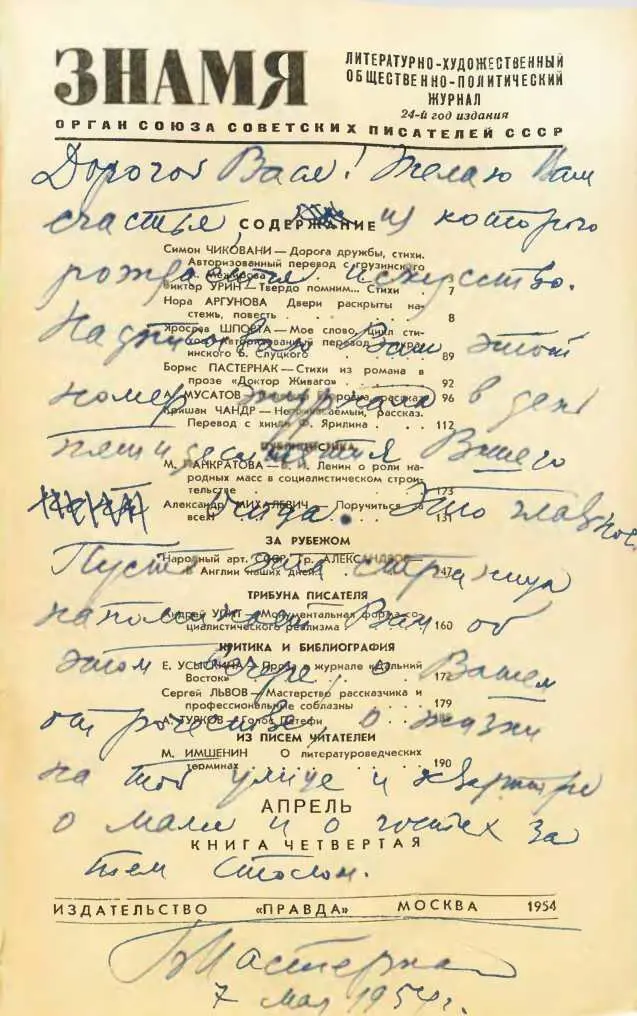 ЗНАМЯ
ЛИТЕРАТУРНО-ХУДОЖЕСТВЕННЫЙ
ОБЩЕСТВЕННО-ПОЛИТИЧЕСКИЙ
ЖУРНАЛ
24-й год издания
ОРГАН СОЮЗА СОВЕТСКИХ ПИСАТЕЛЕЙ СССР
Дорогой Вася! Желаю Вам
счастья из которого
СОДЕРЖАНИЕ
Симон ЧИКОВАНИ — Дорога дружбы, стихи.
Авторизованный перевод с грузинского
рождается искусство.
Виктор УРИН — Твердо помним... Стихи . 7
Нора АРГУНОВА Двери раскрыты на-
стежь, повесть . . . . . 8
Надписываю Вам этот
Ярослав ШПОРТА — Мое слово, цикл сти-
инского Б. Слуцкого . . . . 89
Борис ПАСТЕРНАК — Стихи из романа в
прозе «Доктор Живаго» . . . 92
номер журнала в день
А. МУСАТОВ рассказ 96
Кришан ЧАНДР — рассказ.
Перевод с хинди Ф. Ярилина . . 112
пятидесятилетия Вашего
ПУБЛИЦИСТИКА
М. ПАНКРАТОВА — В. И. Ленин о роли на-
родных масс в социалистическом строи-
тельстве . . . 173
отца. Это главное.
Александр МИХАЛЕВИЧ. Поручиться
всем 131
ЗА РУБЕЖОМ
Пусть эта страница
Народный арт. СССР Гр. АЛЕКСАНДРОВ
в Англии наших дней . . 147
ТРИБУНА ПИСАТЕЛЯ
напоминает Вам об
Андрей УПИТ — Монументальная форма со-
циалистического реализма . . . 160
КРИТИКА И БИБЛИОГРАФИЯ
этом вечере, о Вашем
Е. УСЫСКИНА Проза в журнале «Дальний
Восток» . . . 172
Сергей ЛЬВОВ — Мастерство рассказчика и
профессиональные соблазны . . 179
отрочестве, о жизни
А. ТУРКОВ — Голос Петефи
ИЗ ПИСЕМ ЧИТАТЕЛЕЙ
М. ИМШЕНИН О литературоведческих
терминах . . . 190
на той улице и квартире
АПРЕЛЬ
о маме и о гостях за
КНИГА ЧЕТВЕРТАЯ
тем столом.
ИЗДАТЕЛЬСТВО «ПРАВДА» МОСКВА 1954
Б Пастернак
7 мая 1954 г.